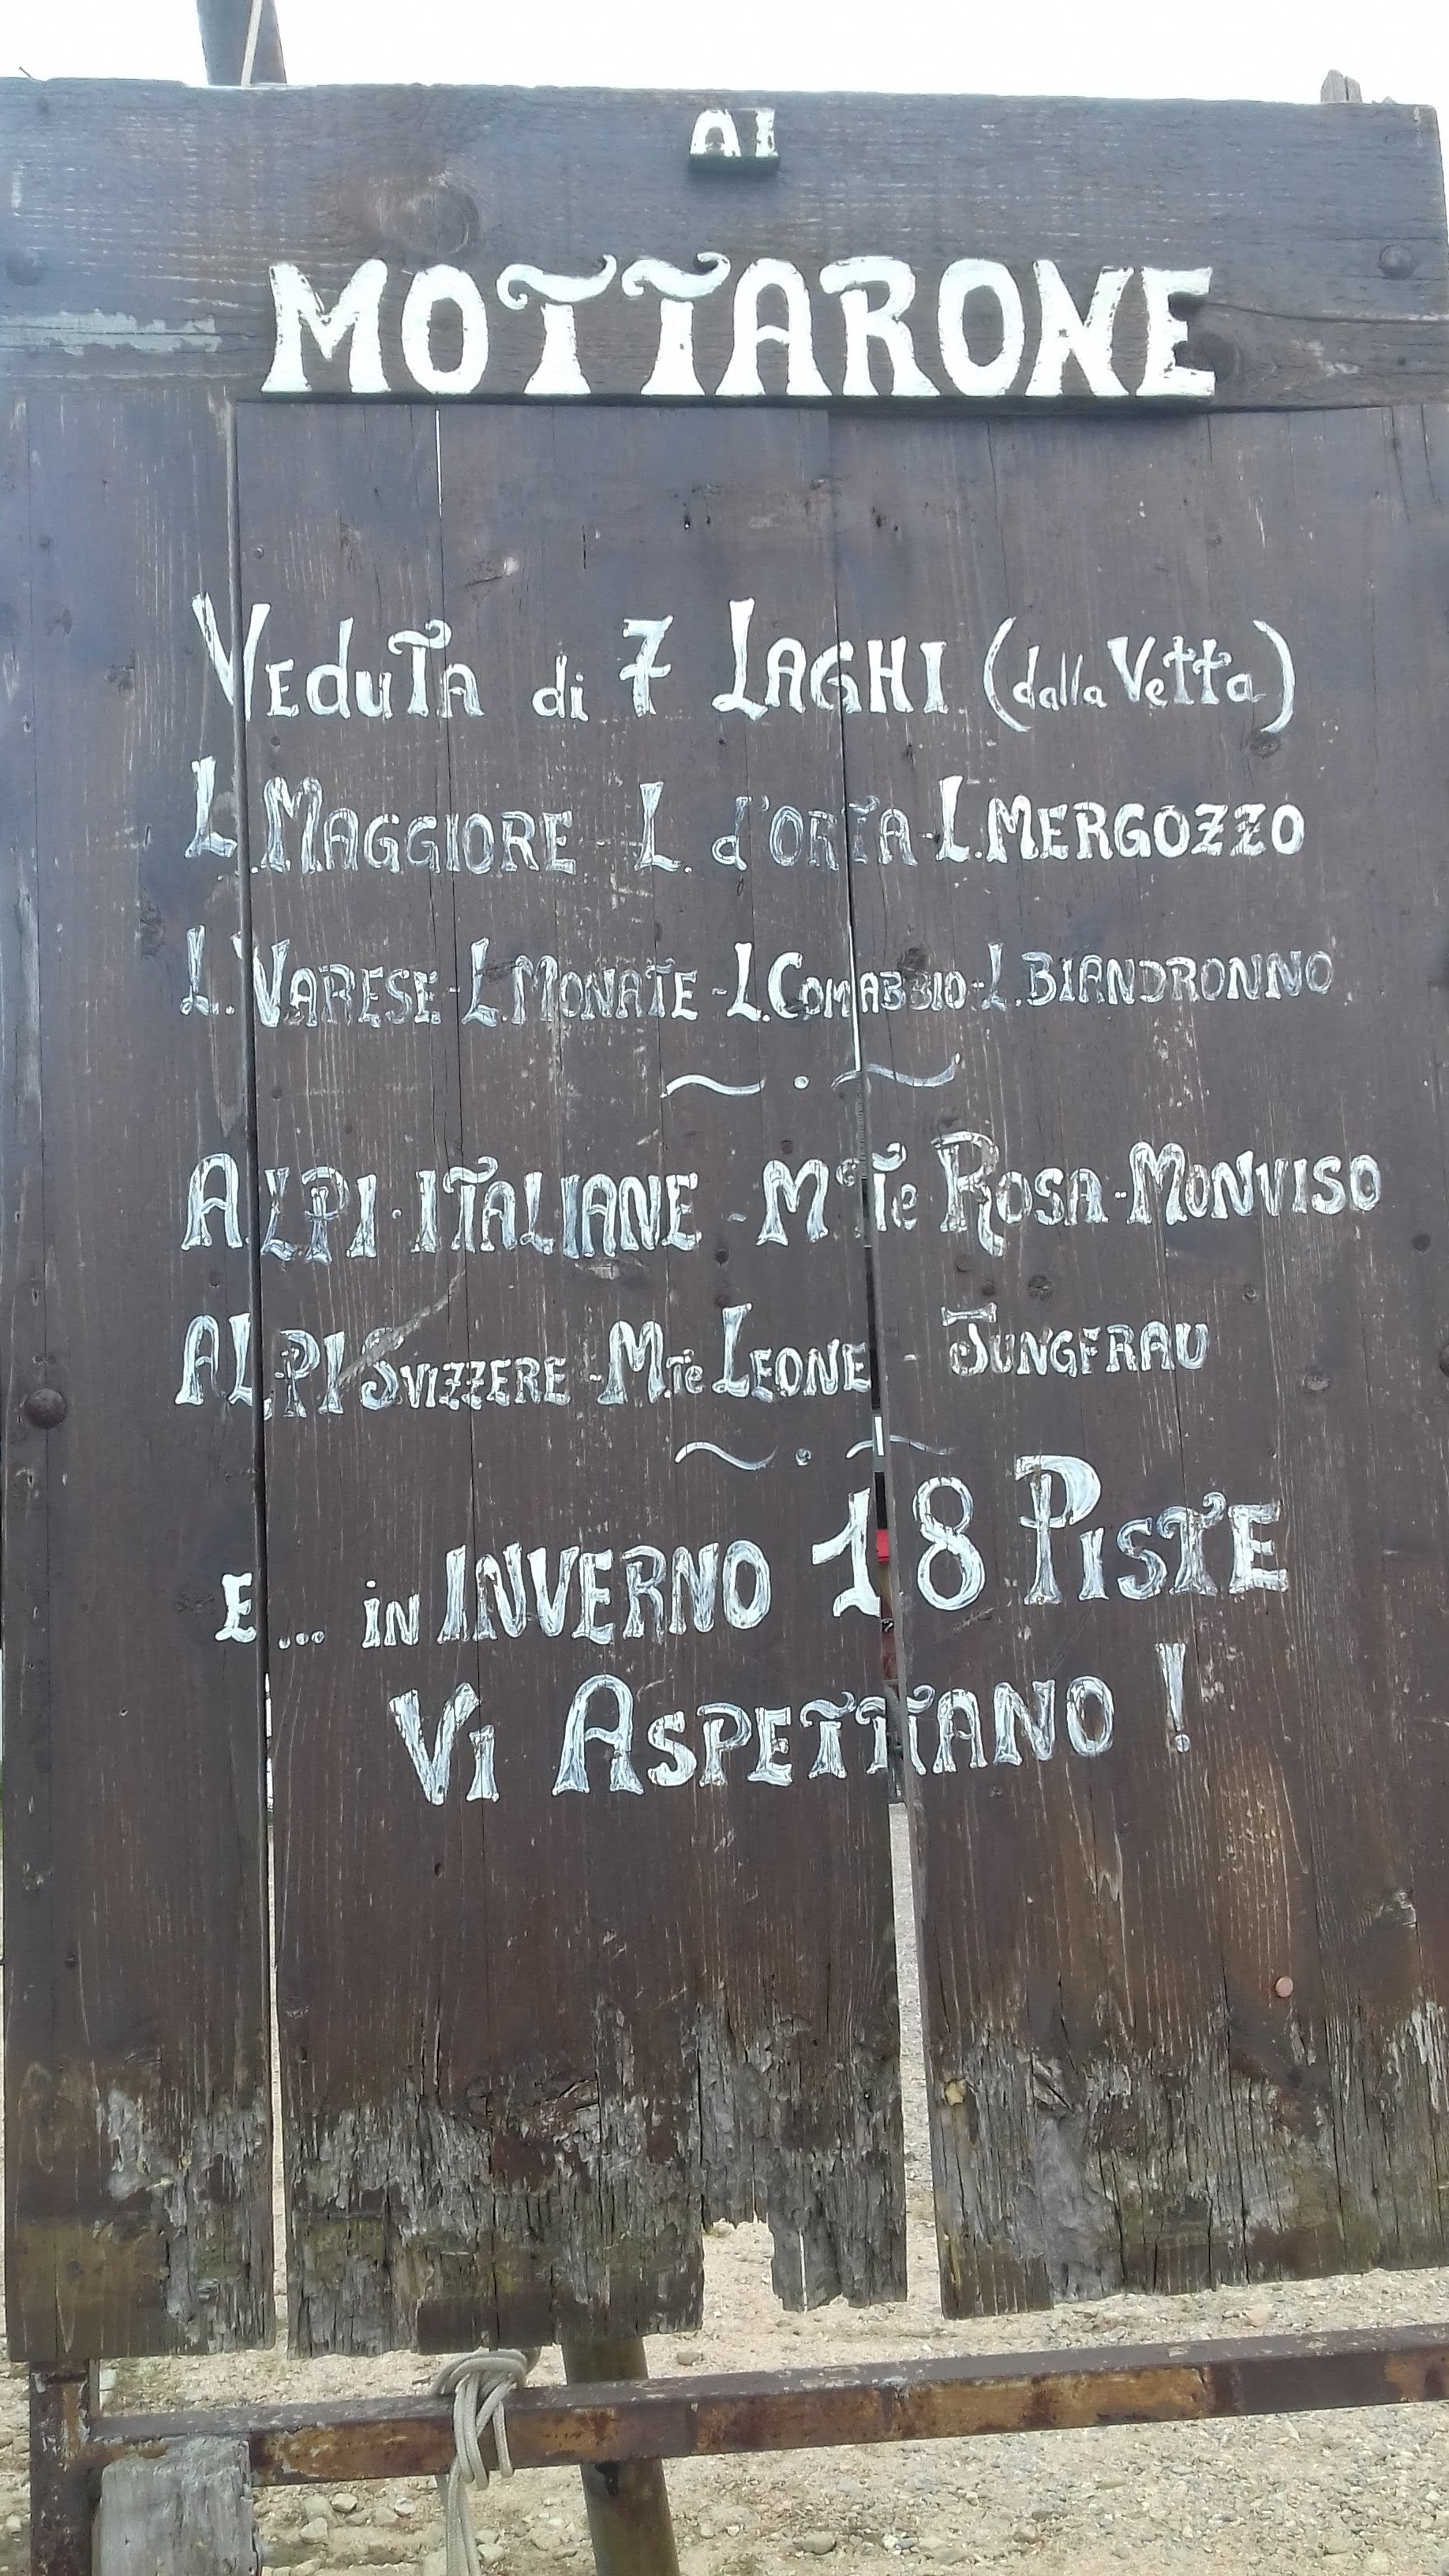 AL
MOTTARONE
VEduTA di 7 LAGHI (dalla Vetta)
L. MAGGIORE L. d'ORTA - L. MERGOZZO
L. VARESE - L. MONATE - L. COMABBIO - L. BIANDRONNO
ALPI · ITALIANE - MTe ROSA - MONVISO
ALPI SVIZZERE - M.Te LEONE - JUNGFRAU
E... iN INVERNO 18 PISTE
Vi ASPETTANO !